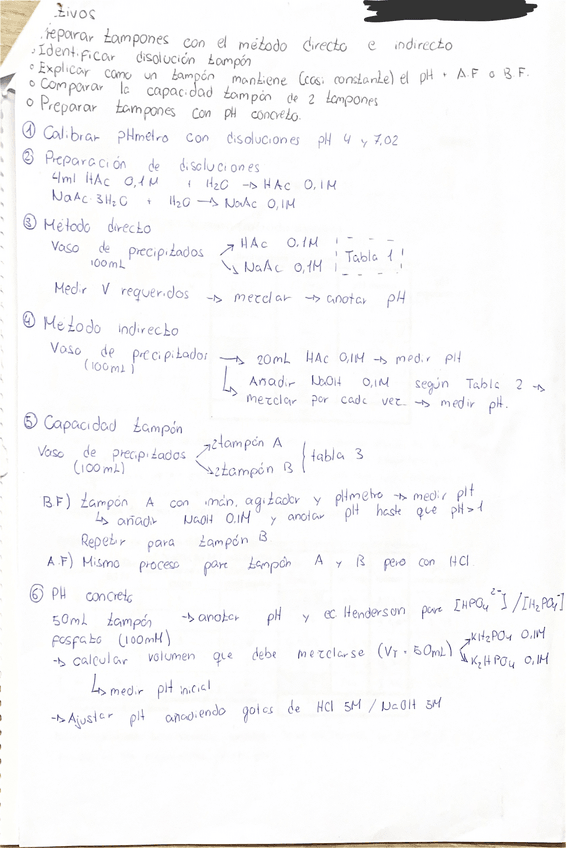 tivos
Preparar tampones con el método directo e indirecto
Identificar disolución tampón
Explicar como un tampón mantiene (casi constante) el pH + A.F o B.F.
Comparar la capacidad tampón de 2 tampones
Preparar tampones con pH concreto.
① Calibrar pHmetro con disoluciones pH 4 y 7,02
② Preparación de disoluciones
4ml HAc 0,1M + H₂O → HAc 0,1M
NaAc·3H₂O + H₂O → NaAc 0,1M
③ Método directo
Vaso de precipitados → HAc 0.1M
100mL → NaAc 0,1M Tabla 1
Medir V requeridos → mezclar → anotar pH
④ Método indirecto
Vaso de precipitados → 20mL HAc 0,1M → medir pH
(100mL) ↳ Añadir NaOH 0.1M según Tabla 2 →
mezclar por cada vez → medir pH.
⑤ Capacidad tampón
Vaso de precipitados → 2 tampón A
(100mL) → 2 tampón B } tabla 3
BF) tampón A con imán, agitador y pHmetro → medir pH
↳ añadir NaOH 0.1M y anotar pH hasta que pH>1
Repetir para tampón B
A.F) Mismo proceso para tampón A y B pero con HCl.
⑥ PH concreto
50mL tampón → anotar pH y ec Henderson para [HPO₄²⁻] / [H₂PO₄⁻]
fosfato (100mM)
→ calcular volumen que debe mezclarse (VT = 50mL) → KH₂PO₄ 0.1M
→ K₂HPO₄ 0,1M
↳ medir pH inicial
→ Ajustar pH añadiendo gotas de HCl 5M / NaOH 5M